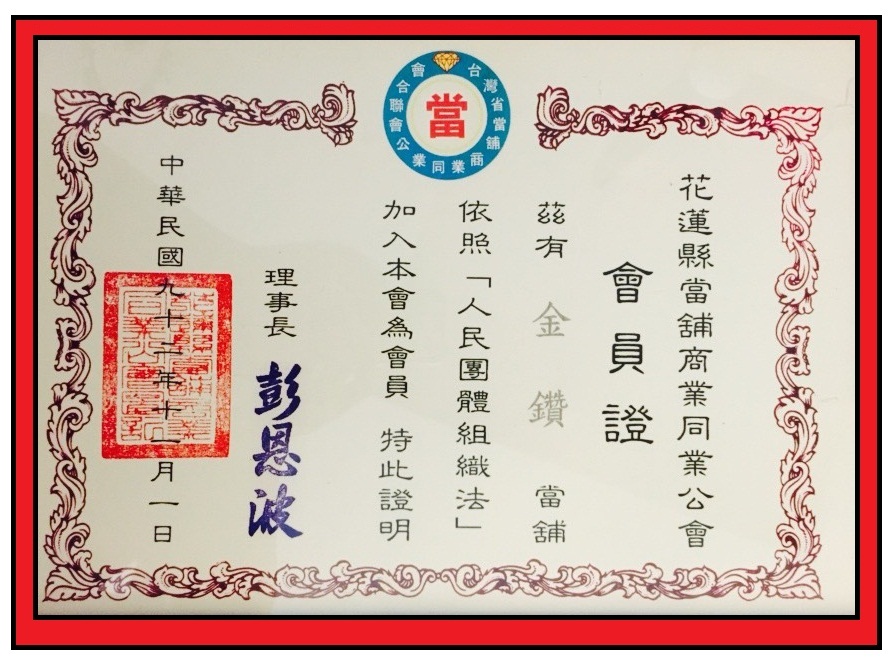 台灣省當舖商業同業公會聯合會
當
花蓮縣當舖商業同業公會
會員證
茲有 金鑽 當舖
依照「人民團體組織法」
加入本會為會員 特此證明
理事長 彭恩波
中華民國九十二年十一月一日